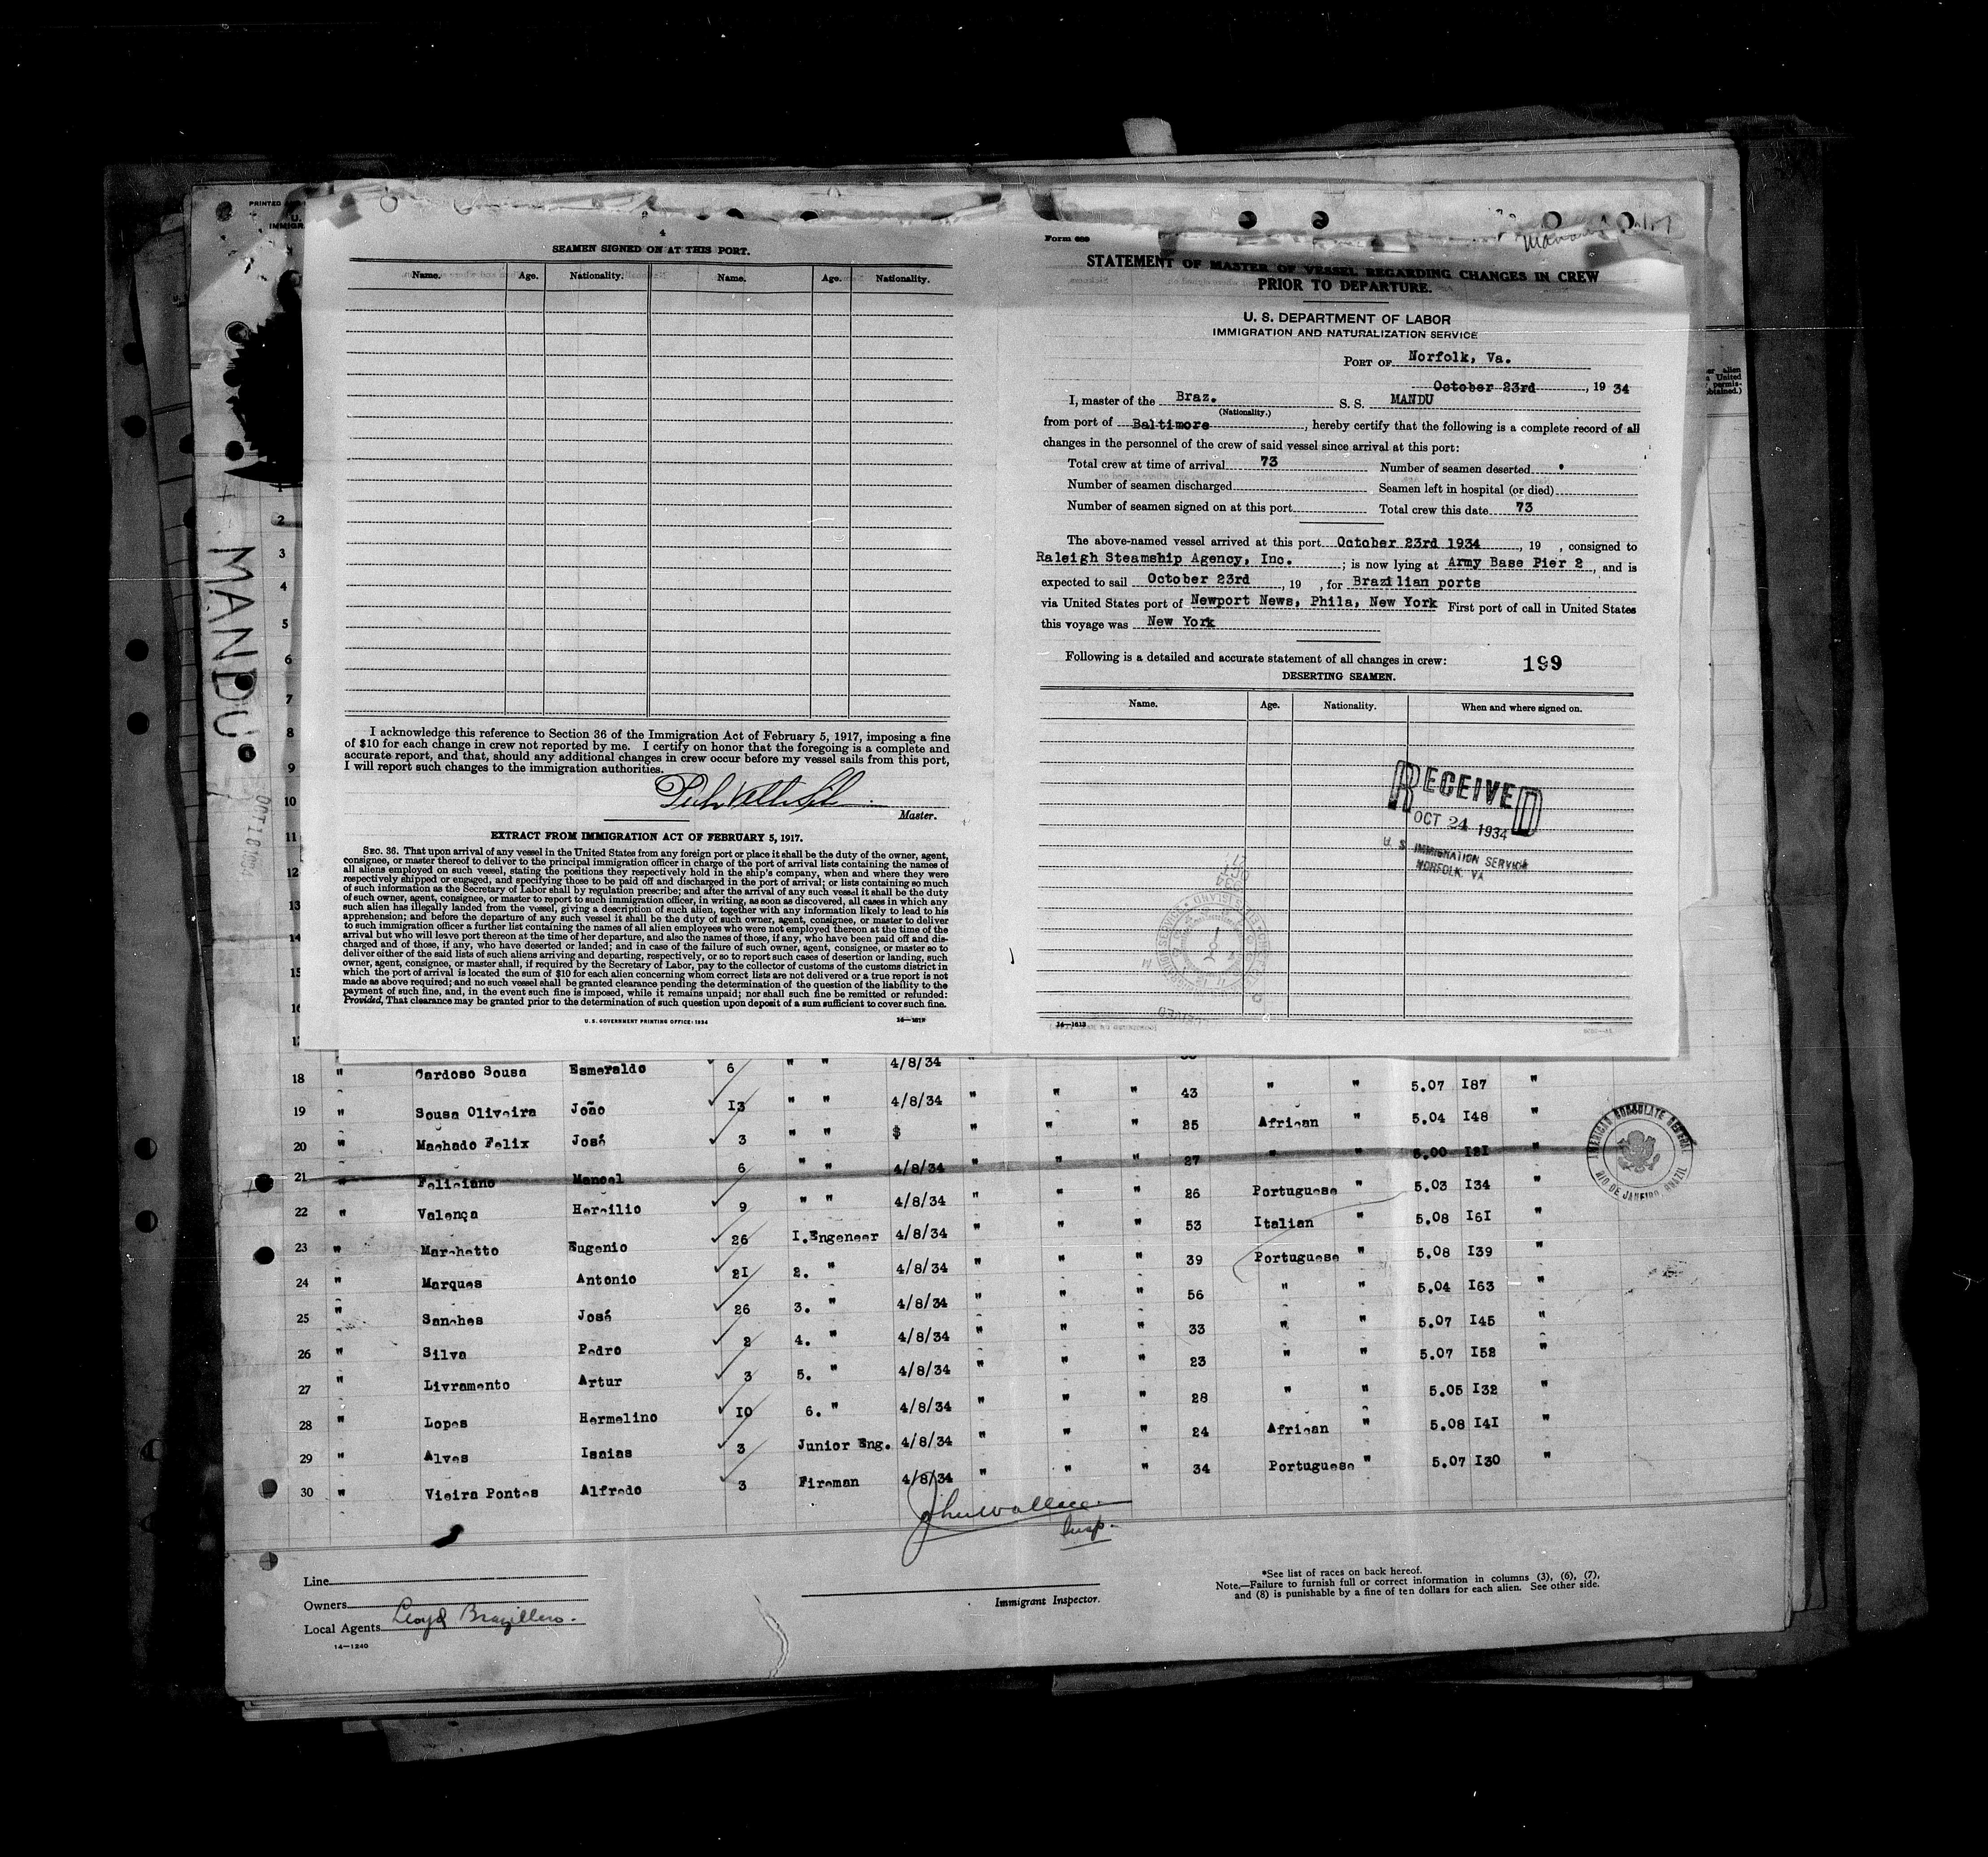 PRINTED
U.
IMMIGR
4
SEAMEN SIGNED ON AT THIS PORT.
Name. Age. Nationality. Name. Age. Nationality.
I acknowledge this reference to Section 36 of the Immigration Act of February 5, 1917, imposing a fine
of $10 for each change in crew not reported by me. I certify on honor that the foregoing is a complete and
accurate report, and that, should any additional changes in crew occur before my vessel sails from this port,
I will report such changes to the immigration authorities.
Master.
EXTRACT FROM IMMIGRATION ACT OF FEBRUARY 5, 1917.
SEC. 36. That upon arrival of any vessel in the United States from any foreign port or place it shall be the duty of the owner, agent,
consignee, or master thereof to deliver to the principal immigration officer in charge of the port of arrival lists containing the names of
all aliens employed on such vessel, stating the positions they respectively hold in the ship's company, when and where they were
respectively shipped or engaged, and specifying those to be paid off and discharged in the port of arrival; or lists containing so much
of such information as the Secretary of Labor shall by regulation prescribe; and after the arrival of any such vessel it shall be the duty
of such owner, agent, consignee, or master to report to such immigration officer, in writing, as soon as discovered, all cases in which any
such alien has illegally landed from the vessel, giving a description of such alien, together with any information likely to lead to his
apprehension; and before the departure of any such vessel it shall be the duty of such owner, agent, consignee, or master to deliver
to such immigration officer a further list containing the names of all alien employees who were not employed thereon at the time of the
arrival but who will leave port thereon at the time of her departure, and also the names of those, if any, who have been paid off and dis-
charged and of those, if any, who have deserted or landed; and in case of the failure of such owner, agent, consignee, or master so to
deliver either of the said lists of such aliens arriving and departing, respectively, or so to report such cases of desertion or landing, such
owner, agent, consignee, or master shall, if required by the Secretary of Labor, pay to the collector of customs of the customs district in
which the port of arrival is located the sum of $10 for each alien concerning whom correct lists are not delivered or a true report is not
made as above required; and no such vessel shall be granted clearance pending the determination of the question of the liability to the
payment of such fine, and, in the event such fine is imposed, while it remains unpaid; nor shall such fine be remitted or refunded:
Provided, That clearance may be granted prior to the determination of such question upon deposit of a sum sufficient to cover such fine.
U. S. GOVERNMENT PRINTING OFFICE: 1934 14—1613
Form 689
STATEMENT OF MASTER OF VESSEL REGARDING CHANGES IN CREW
PRIOR TO DEPARTURE.
U. S. DEPARTMENT OF LABOR
IMMIGRATION AND NATURALIZATION SERVICE
PORT OF Norfolk, Va.
October 23rd, 19 34
I, master of the Braz. S. S. MANDU
(Nationality.)
from port of Baltimore, hereby certify that the following is a complete record of all
changes in the personnel of the crew of said vessel since arrival at this port:
Total crew at time of arrival 73 Number of seamen deserted
Number of seamen discharged Seamen left in hospital (or died)
Number of seamen signed on at this port Total crew this date 73
The above-named vessel arrived at this port October 23rd 1934, 19 , consigned to
Raleigh Steamship Agency, Inc. ; is now lying at Army Base Pier 2, and is
expected to sail October 23rd, 19 , for Brazilian ports
via United States port of Newport News, Phila, New York First port of call in United States
this voyage was New York
Following is a detailed and accurate statement of all changes in crew: 199
DESERTING SEAMEN.
Name. Age. Nationality. When and where signed on.
RECEIVED
OCT 24 1934
U. S. IMMIGRATION SERVICE
NORFOLK, VA
14—1613
MANDU
1
2
3
4
5
6
7
8
9
10
11
12
13
14
15
16
17
18 " Cardoso Sousa Esmeraldo 6 " " 4/8/34 "
19 " Sousa Oliveira João 13 " " 4/8/34 " " " 43 " " 5.07 I87 "
20 " Machado Felix José 3 " " $ " " " 25 African " 5.04 I48 "
21 " Feliciano Manoel 6 " " 4/8/34 " " " 27 " " 5.00 I2I "
22 " Valença Hercilio 9 " " 4/8/34 " " " 26 Portuguese " 5.03 I34 "
23 " Marchetto Eugenio 26 I.Engeneer 4/8/34 " " " 53 Italian " 5.08 I6I "
24 " Marques Antonio 2I 2. " 4/8/34 " " " 39 Portuguese " 5.08 I39 "
25 " Sanches José 26 3. " 4/8/34 " " " 56 " " 5.04 I63 "
26 " Silva Pedro 2 4. " 4/8/34 " " " 33 " " 5.07 I45 "
27 " Livramento Artur 3 5. " 4/8/34 " " " 23 " " 5.07 I52 "
28 " Lopes Hermelino IO 6. " 4/8/34 " " " 28 " " 5.05 I32 "
29 " Alves Isaias 3 Junior Eng. 4/8/34 " " " 24 African " 5.08 I4I "
30 " Vieira Pontes Alfredo 3 Fireman 4/8/34 " " " 34 Portuguese " 5.07 I30 "
AMERICAN CONSULATE GENERAL
RIO DE JANEIRO, BRAZIL
John Wallace
Insp.
Line
Owners
Local Agents Lloyd Brazillero.
14—1240
Immigrant Inspector.
*See list of races on back hereof.
Note.—Failure to furnish full or correct information in columns (3), (6), (7),
and (8) is punishable by a fine of ten dollars for each alien. See other side.